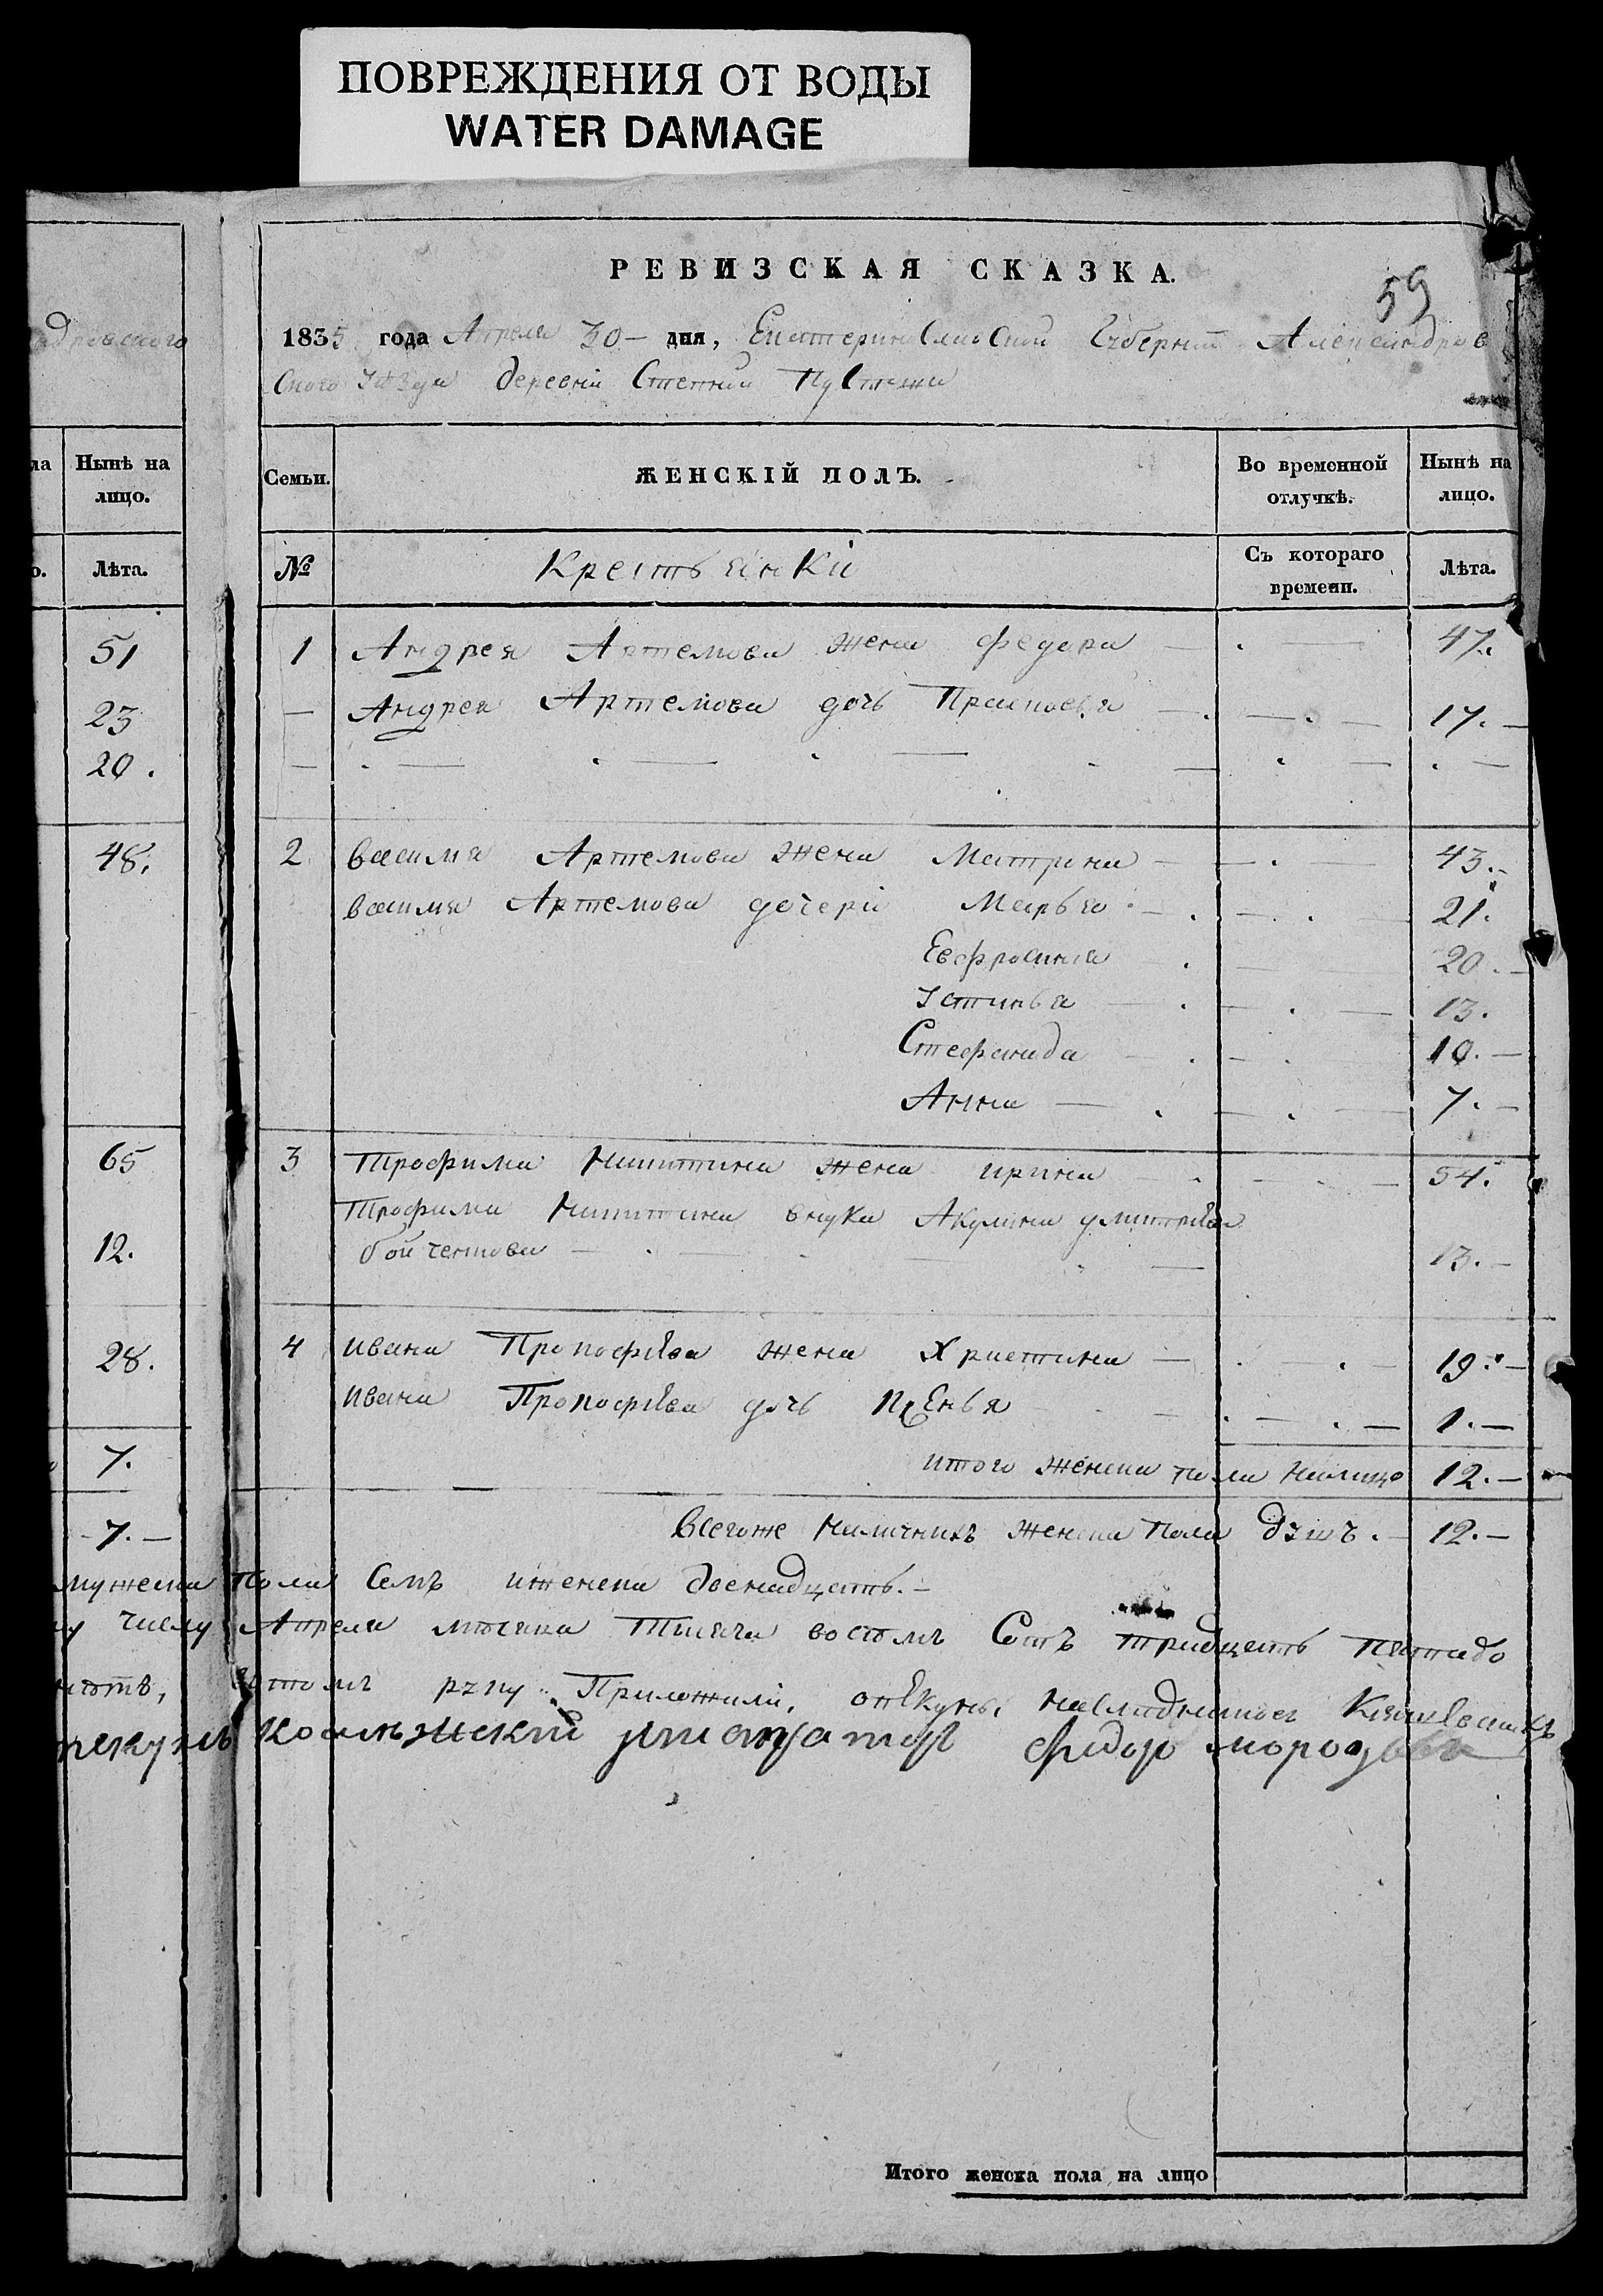 ПОВРЕЖДЕНИЯ ОТ ВОДЫ
WATER DAMAGE
РЕВИЗСКАЯ СКАЗКА.
59
1835 года Апреля 30 – дня, Екатеринославской Губернiи Александров
ского уѣзда деревнi Степной
дровского
ла Нынѣ на лицо.
о. Лѣта.
51
23
20.
48.
65
12.
28.
7.
7. –
Семьи. ЖЕНСКIЙ ПОЛЪ. Во временной отлучкѣ. Нынѣ на лицо.
№ Крестьянкi Съ котораго времени. Лѣта.
1 Андрея Артемова жена Федора 47.
– Андрея Артемова дочь Прасковья 17. –
2. василия Артемова жена Матрина 43. –
василия Артемова дочерi Марья 21.
Евфросиния 20. –
Устинья 13.
Стефанида 10. –
Анна 7. –
3 Трофима Никитина жена ирина 54.
Трофима Никитина внука Акулина дмитрѣва
бойченкова 13. –
4 ивана Прокофѣва жена Христина 19. –
ивана Прокофѣва дочь 1. –
итого женска пола налицо 12. –
всегоже наличнихъ женска пола душъ. 12. –
мужеска пола Семъ иженска двенадцать. –
числу Апреля мѣсяца Тисяча восемъ Сотъ тридцать пятаго
руку Приложили, опѣкуны,
федор морозов
Итого женска пола на лицо